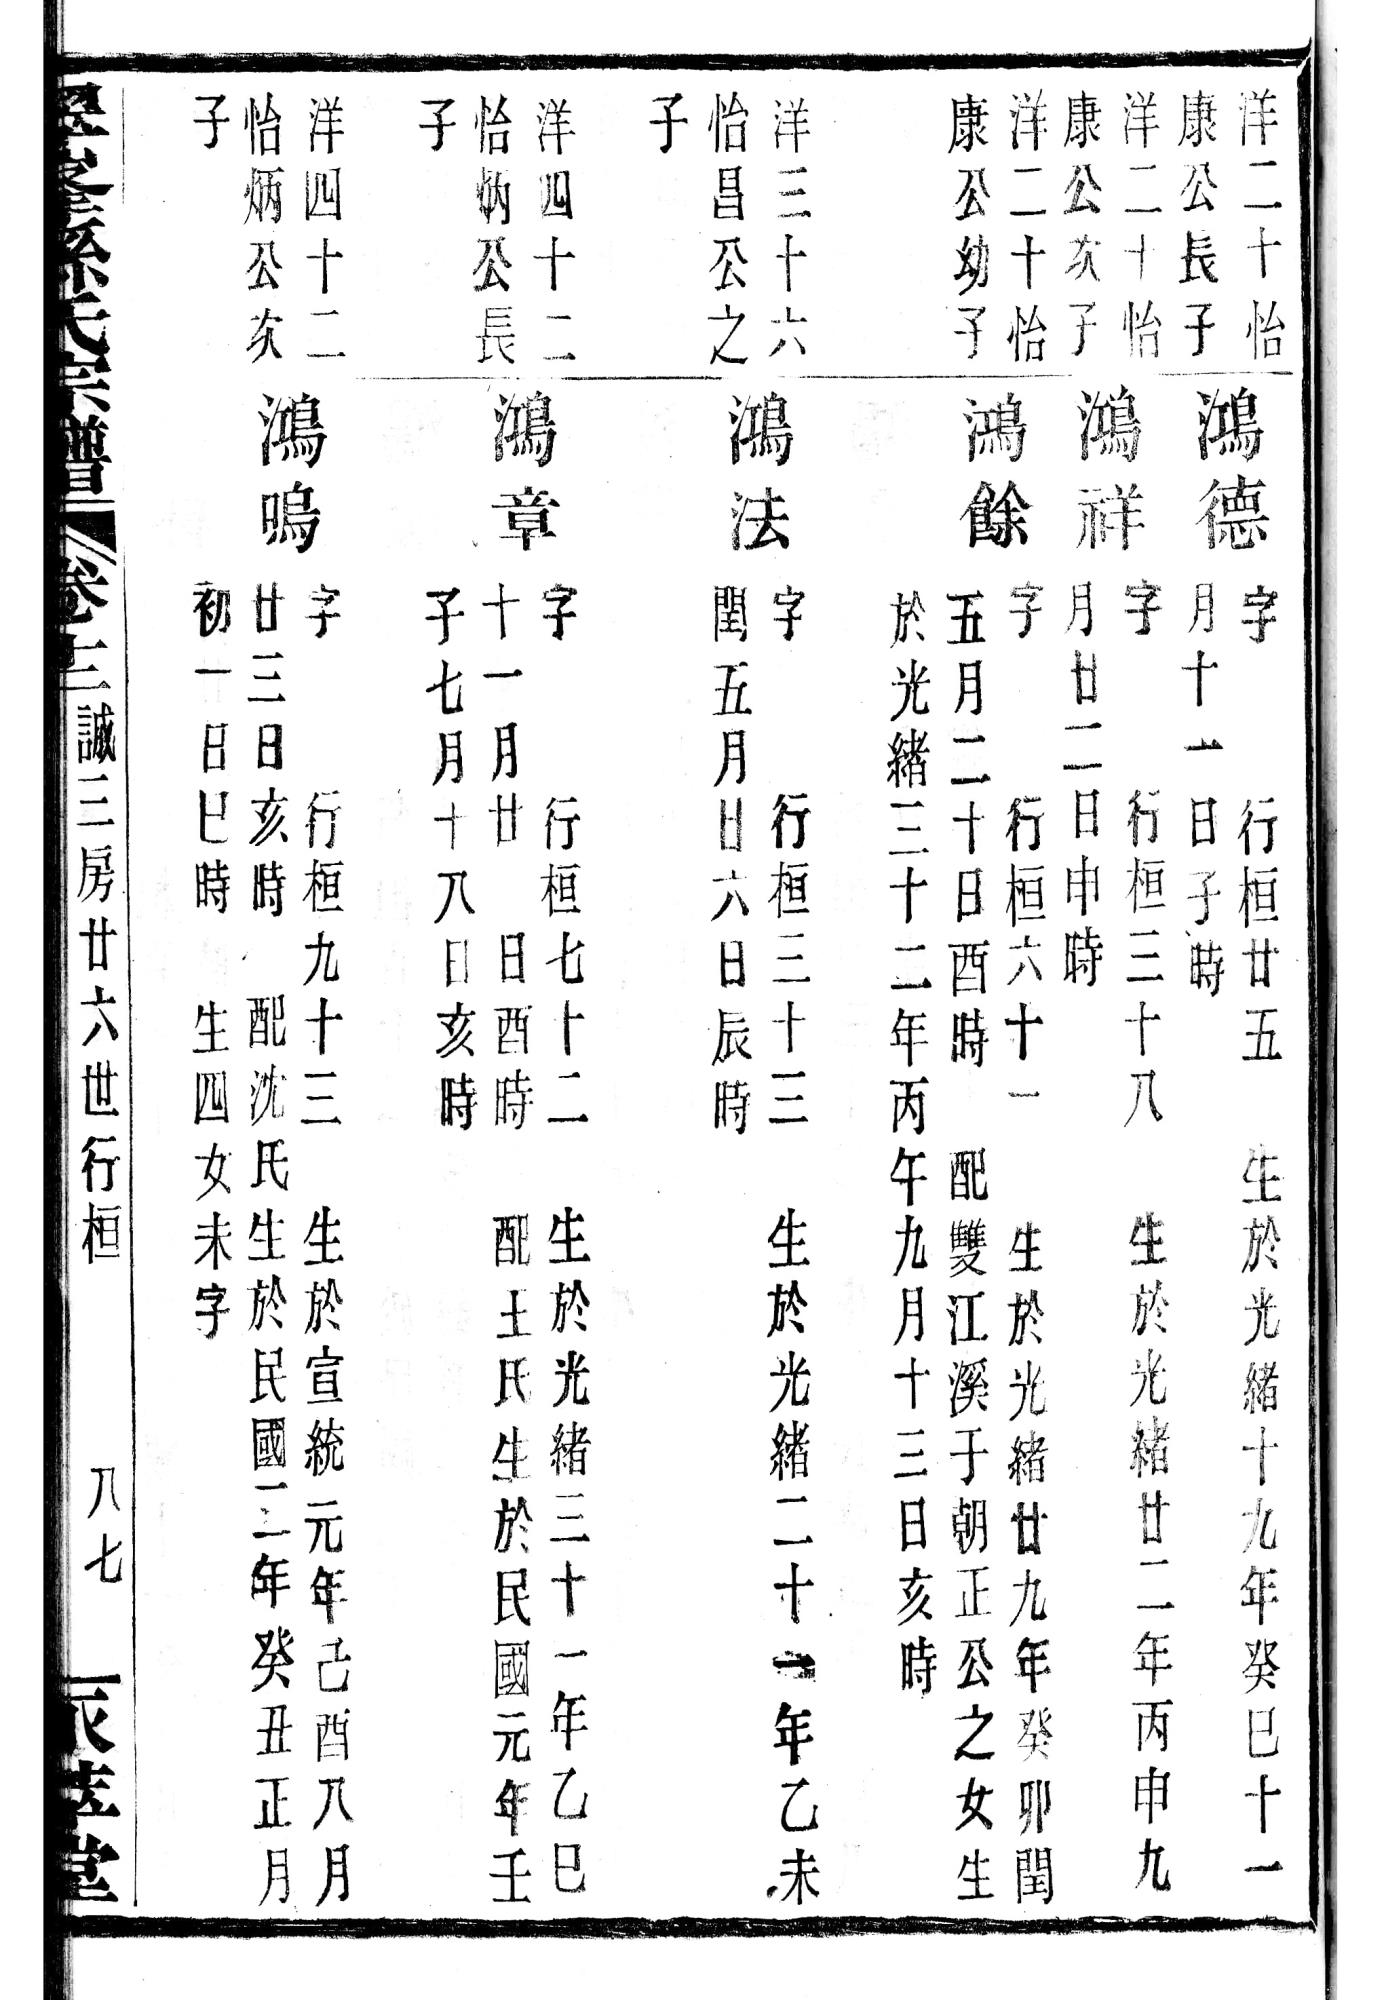 洋二十怡
康公長子
鴻德
字　行桓廿五　生於光緒十九年癸巳十一
月十一日子時
洋二十怡
康公次子
鴻祥
字　行桓三十八　生於光緒廿二年丙申九
月廿二日申時
洋二十怡
康公幼子
鴻餘
字　行桓六十一　生於光緒廿九年癸卯閏
五月二十日酉時　配雙江溪于朝正公之女生
於光緒三十二年丙午九月十三日亥時
洋三十六
怡昌公之
子
鴻法
字　行桓三十三　生於光緒二十一年乙未
閏五月廿六日辰時
洋四十二
怡炳公長
子
鴻章
字　行桓七十二　生於光緒三十一年乙巳
十一月廿　日酉時　配王氏生於民國元年壬
子七月十八日亥時
洋四十二
怡炳公次
子
鴻鳴
字　行桓九十三　生於宣統元年己酉八月
廿三日亥時　配沈氏生於民國二年癸丑正月
初一日巳時　生四女未字
孫氏宗譜　卷十三　誠三房廿六世行桓　八七　堂